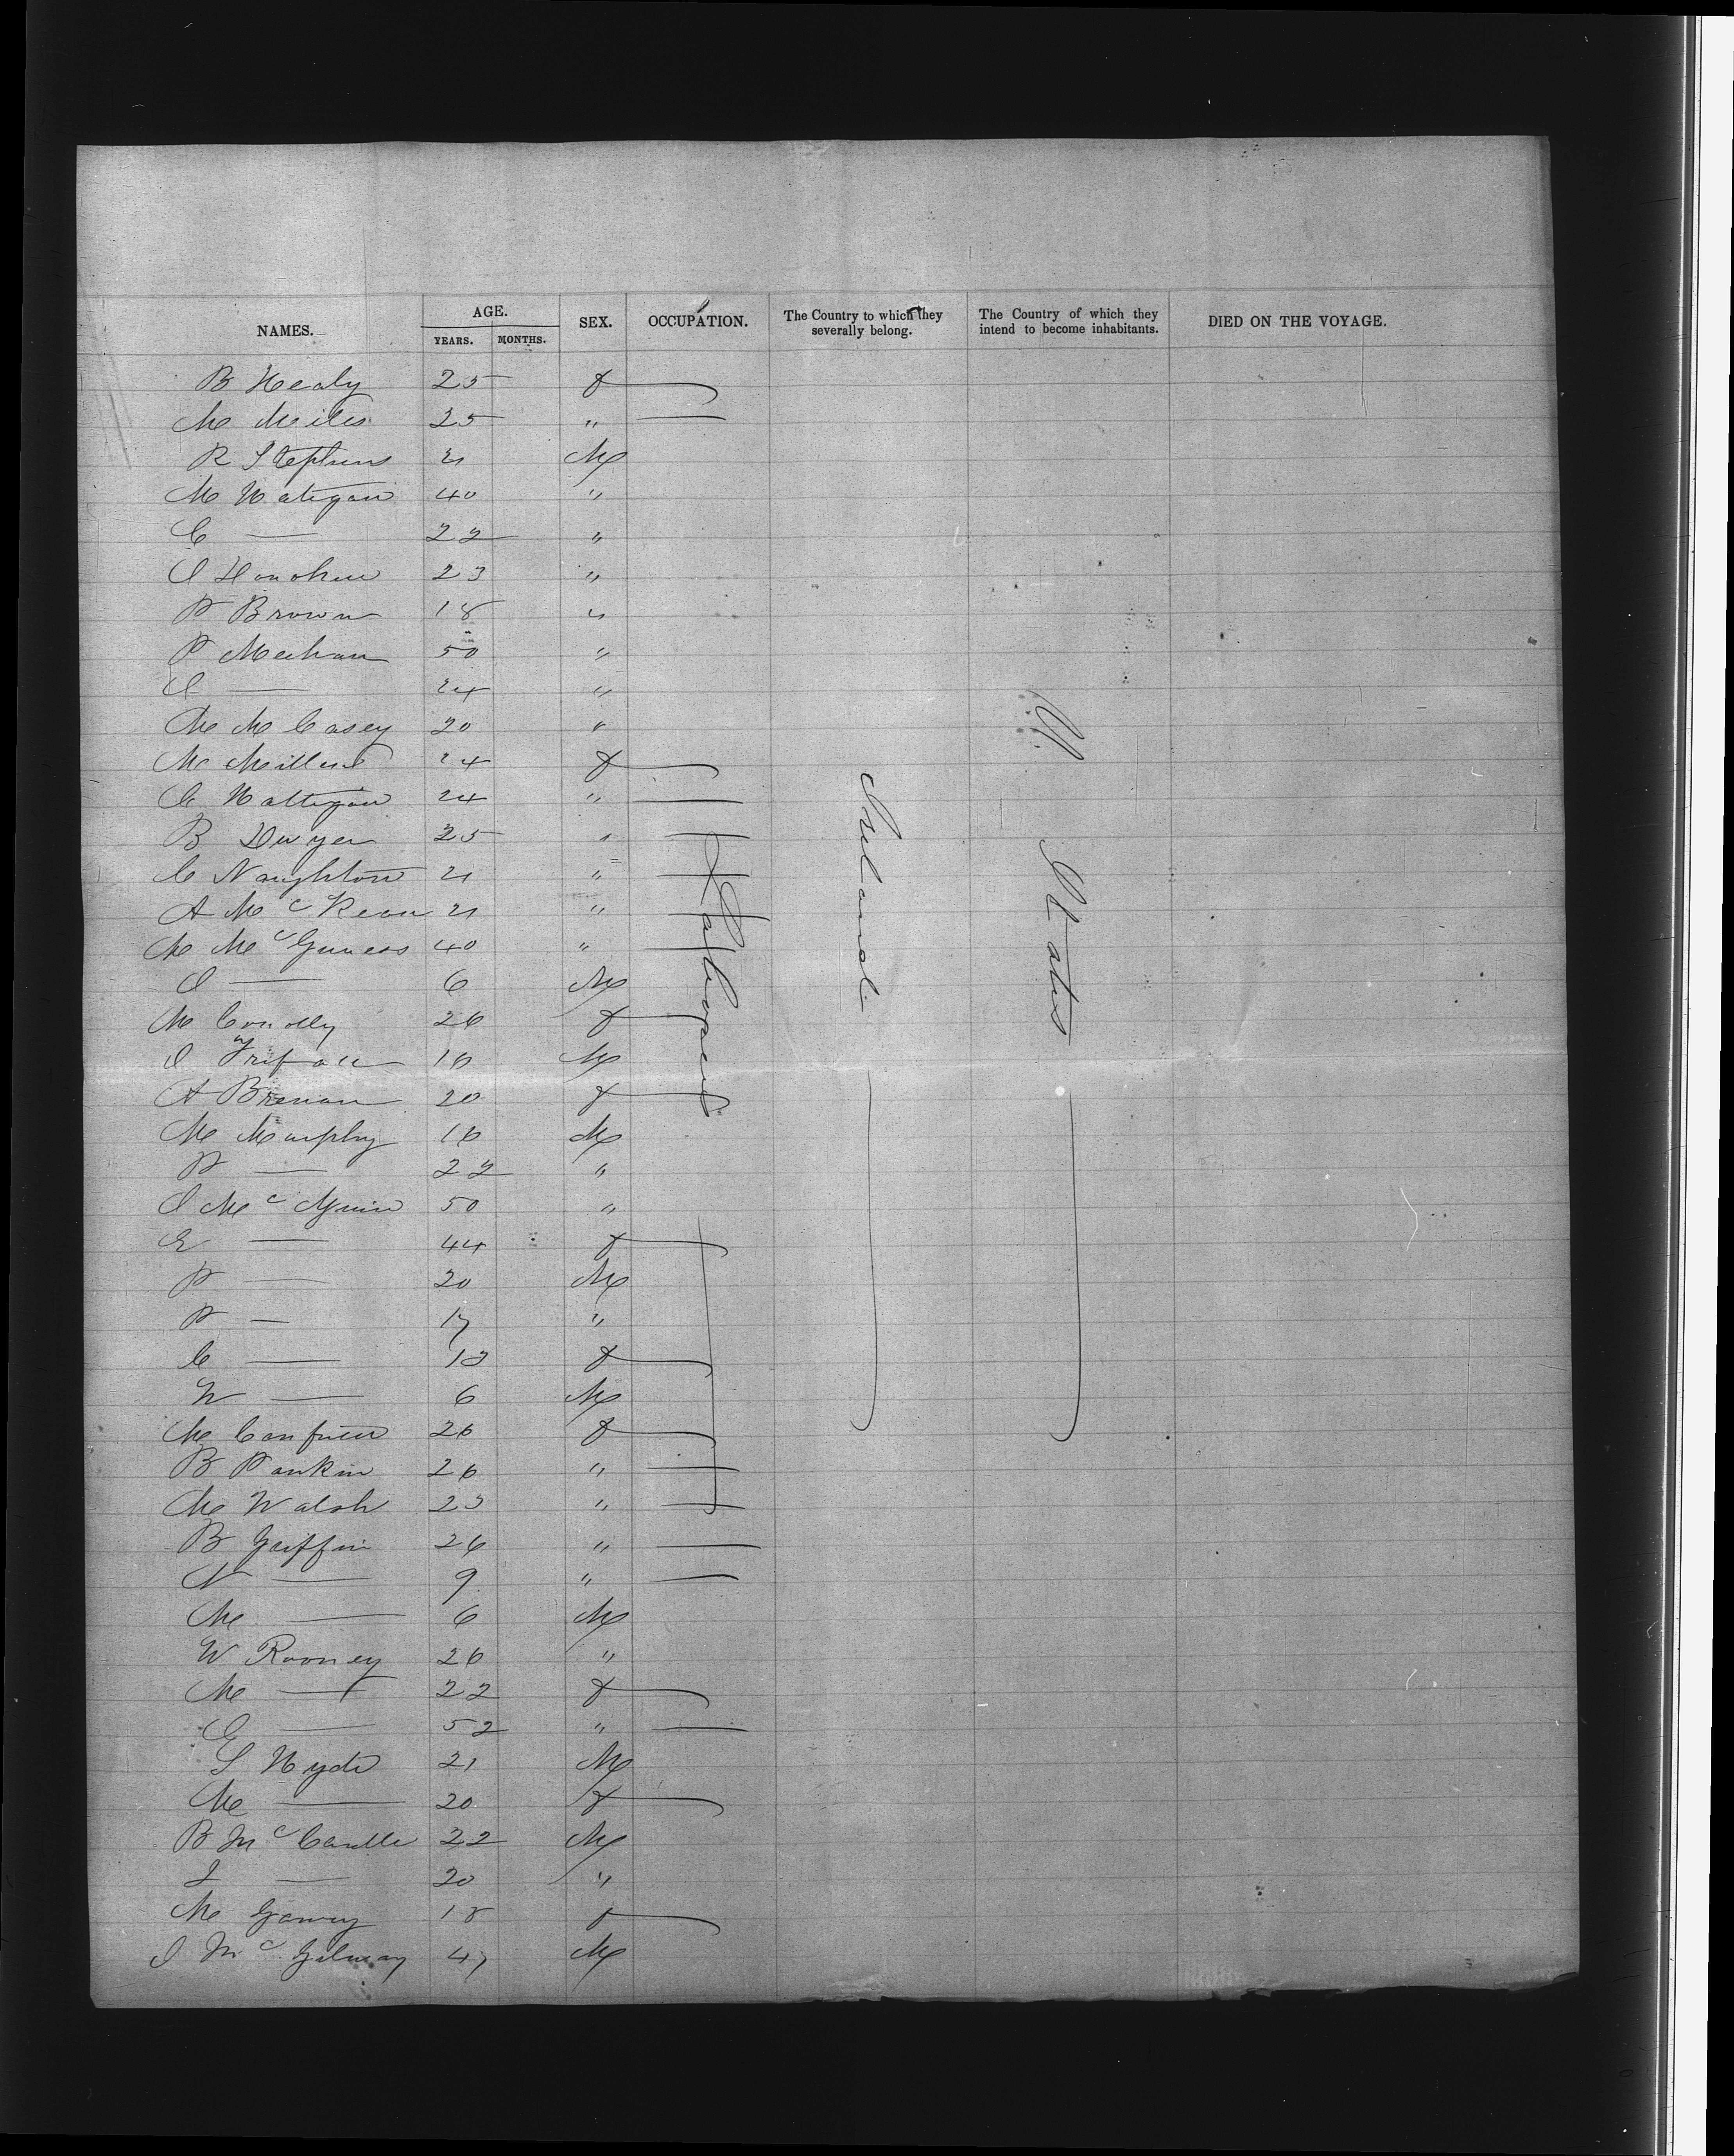 NAMES. AGE. YEARS. MONTHS. SEX. OCCUPATION. The Country to which they severally belong. The Country of which they intend to become inhabitants. DIED ON THE VOYAGE.
B Healy 25 f
M Miles 25 "
R Stephens 21 M
M Hatigan 40 "
C — 22 "
J Donohue 23 "
P Brown 18 "
P Meehan 50 "
J — 24 "
M McCasey 20 "
M 24 f
C Hattigan 24 "
B Dwyer 25 "
C Naughton 21 "
A McKeon 21 "
M McGuness 40 "
J — 6 M
M Conolly 26 f
J 16 M
A Brenan 20 f
M Murphy 16 M
P — 22 "
J Mc 50 "
E — 44 f
P — 20 M
P — 17 "
C — 13 f
W — 6 M
M 26 f
B 26 "
M Walsh 23 "
B Griffin 26 "
N — 9 "
M — 6 M
W Rooney 26 "
M — 22 f
C — 52 "
S Hyde 21 M
M — 20 f
B McCardle 22 M
J — 20 "
M 18 f
J McGilway 47 M
Labourers
Ireland
U. States